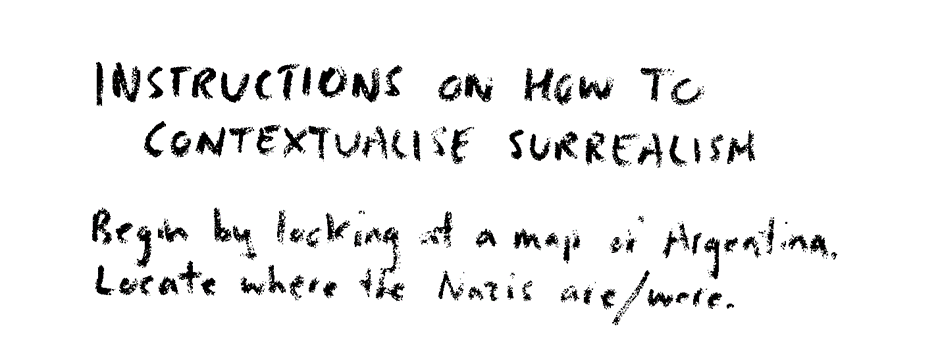 INSTRUCTIONS ON HOW TO
CONTEXTUALISE SURREALISM
Begin by looking at a map of Argentina.
Locate where the Nazis are/were.